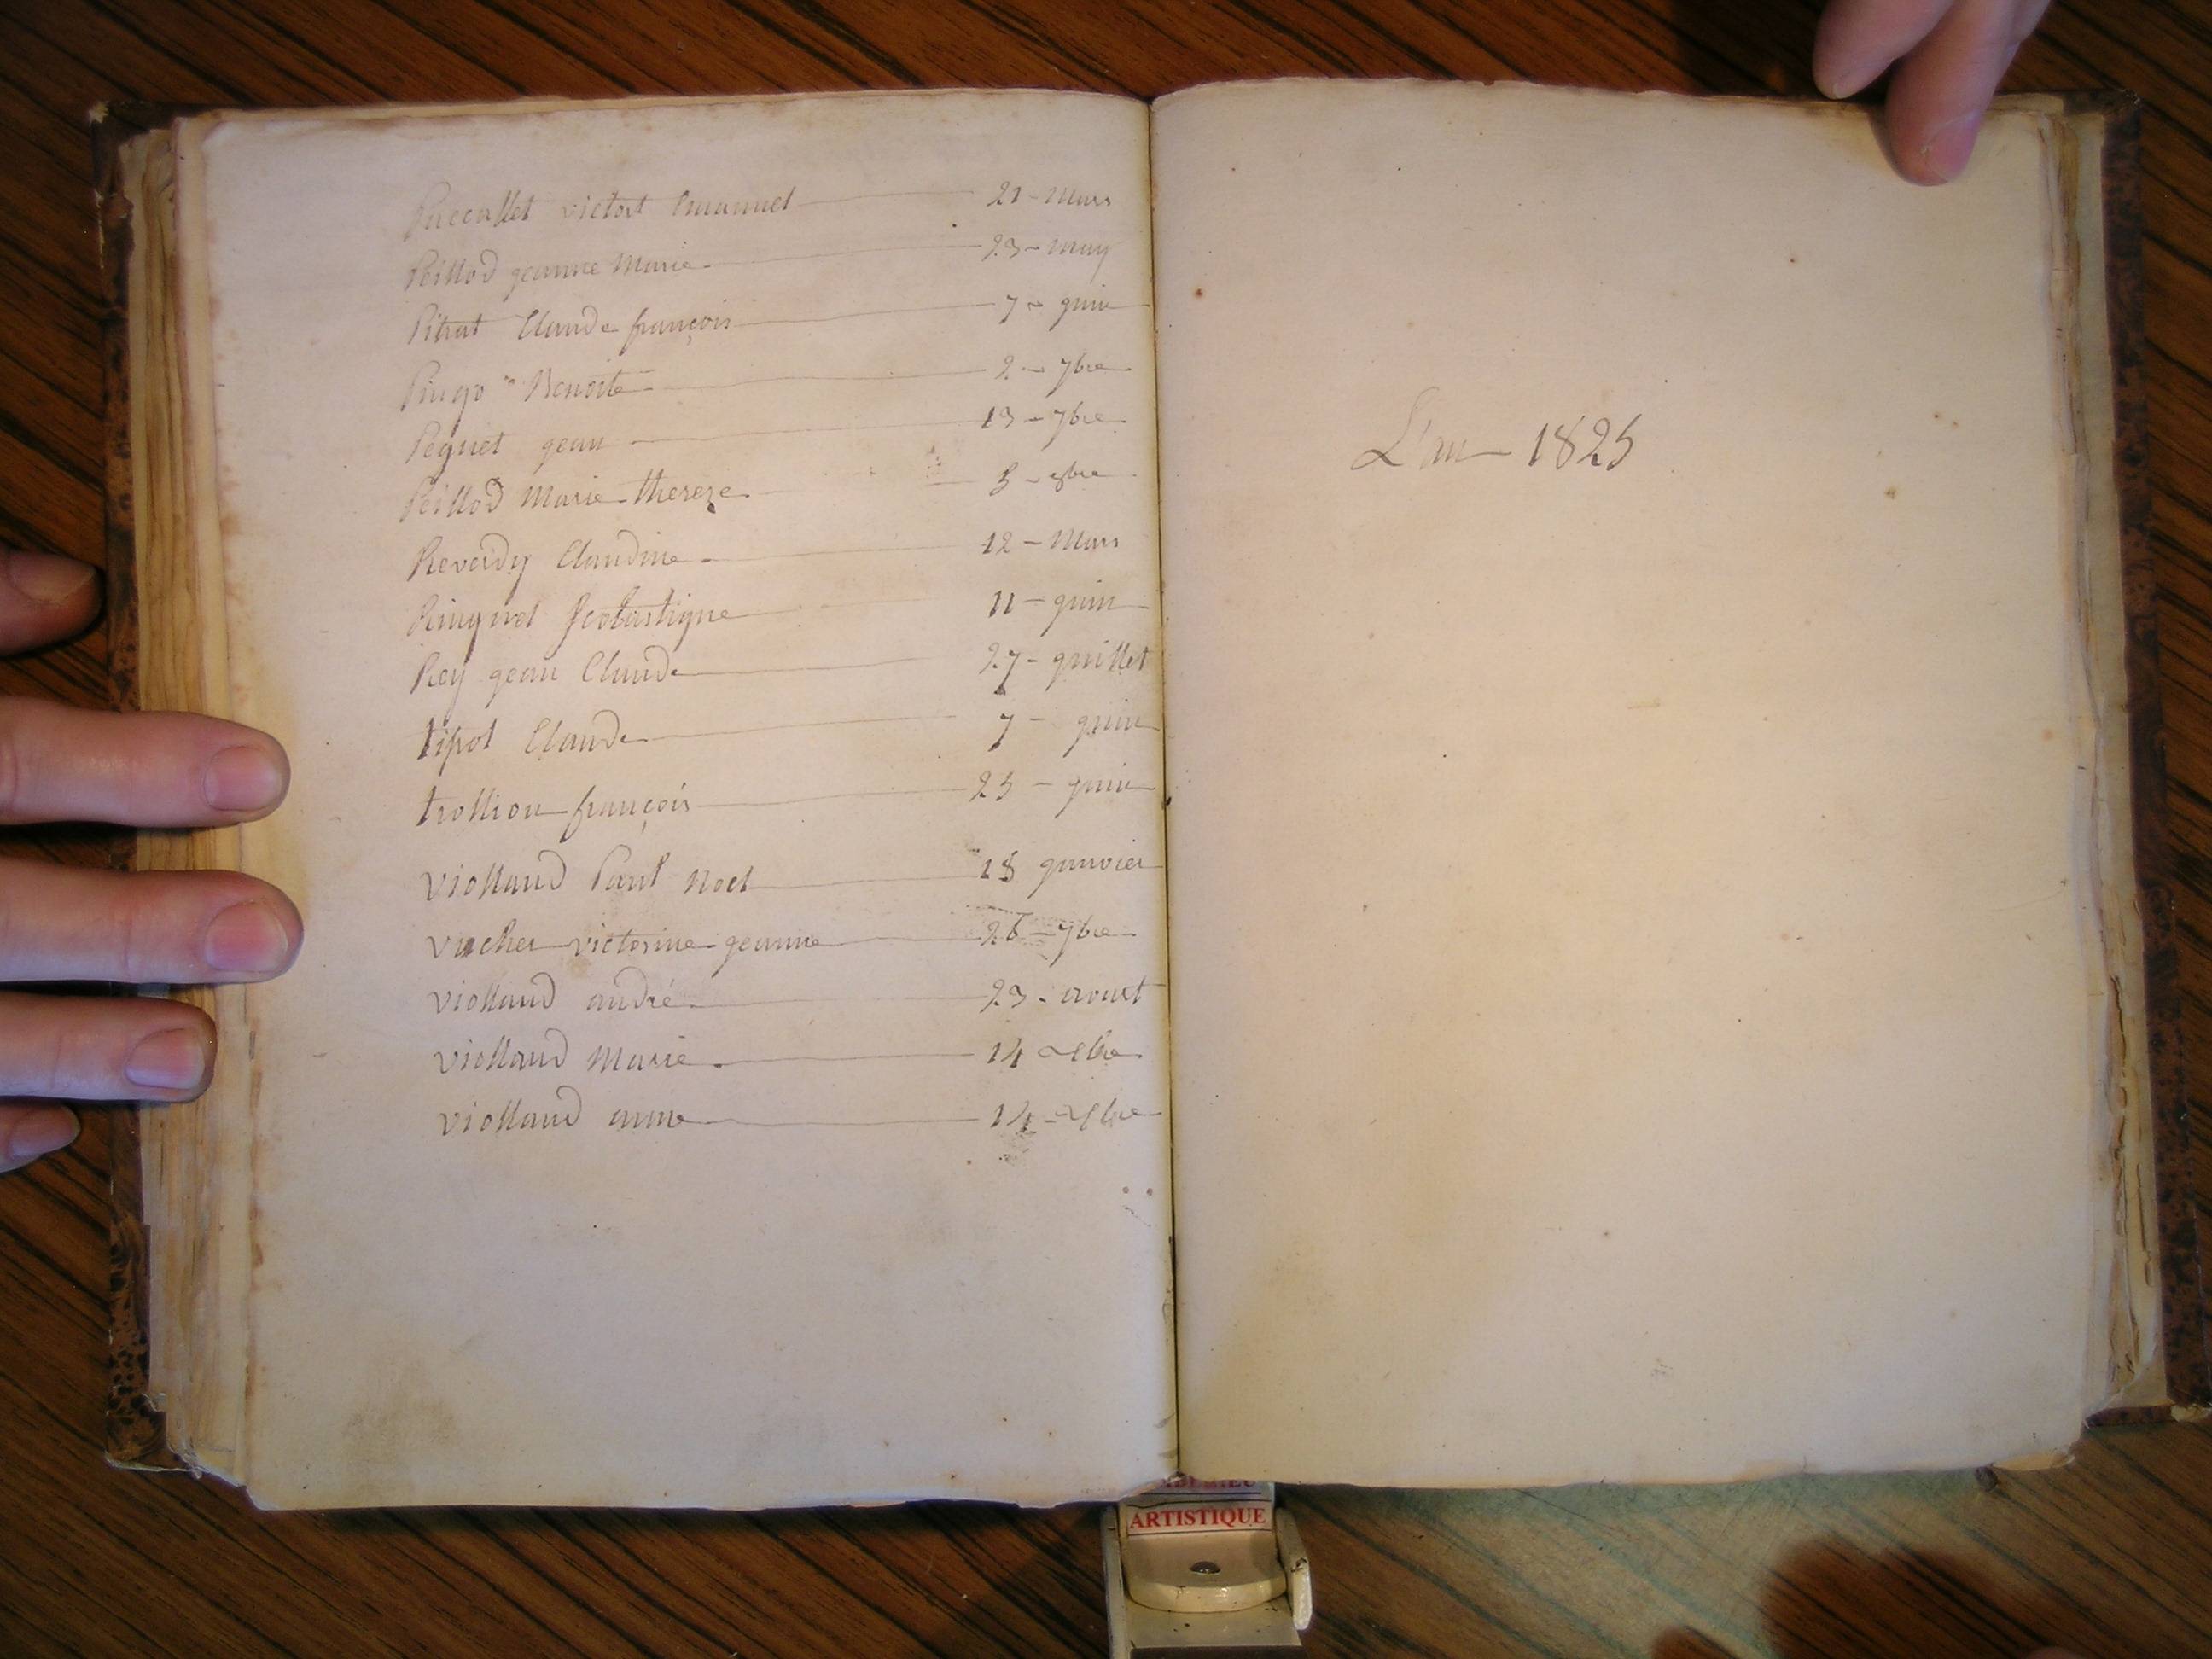 Puccallet victort Emanuel 21 - Mars
Peillod geanne Marie 23 - may
Pitrat Claude françois 7 - guin
Pingo Benoite 2 - 7bre
Peguet gean 13 - 7bre
Peillod Marie thereze 3 - 8bre
Reverdy Claudine 12 - Mars
Ringuet Scolastique 11 - guin
Rey gean Claude 27 - guillet
tipot Claude 7 - guin
trolliou françois 25 - guin
viollaud Paul Noel 18 ganvier
vucher victorine geanne 26 - 7bre
viollaud andré 23 - aoust
viollaud Marie 14
viollaud anne 14
L'an 1825
ARTISTIQUE